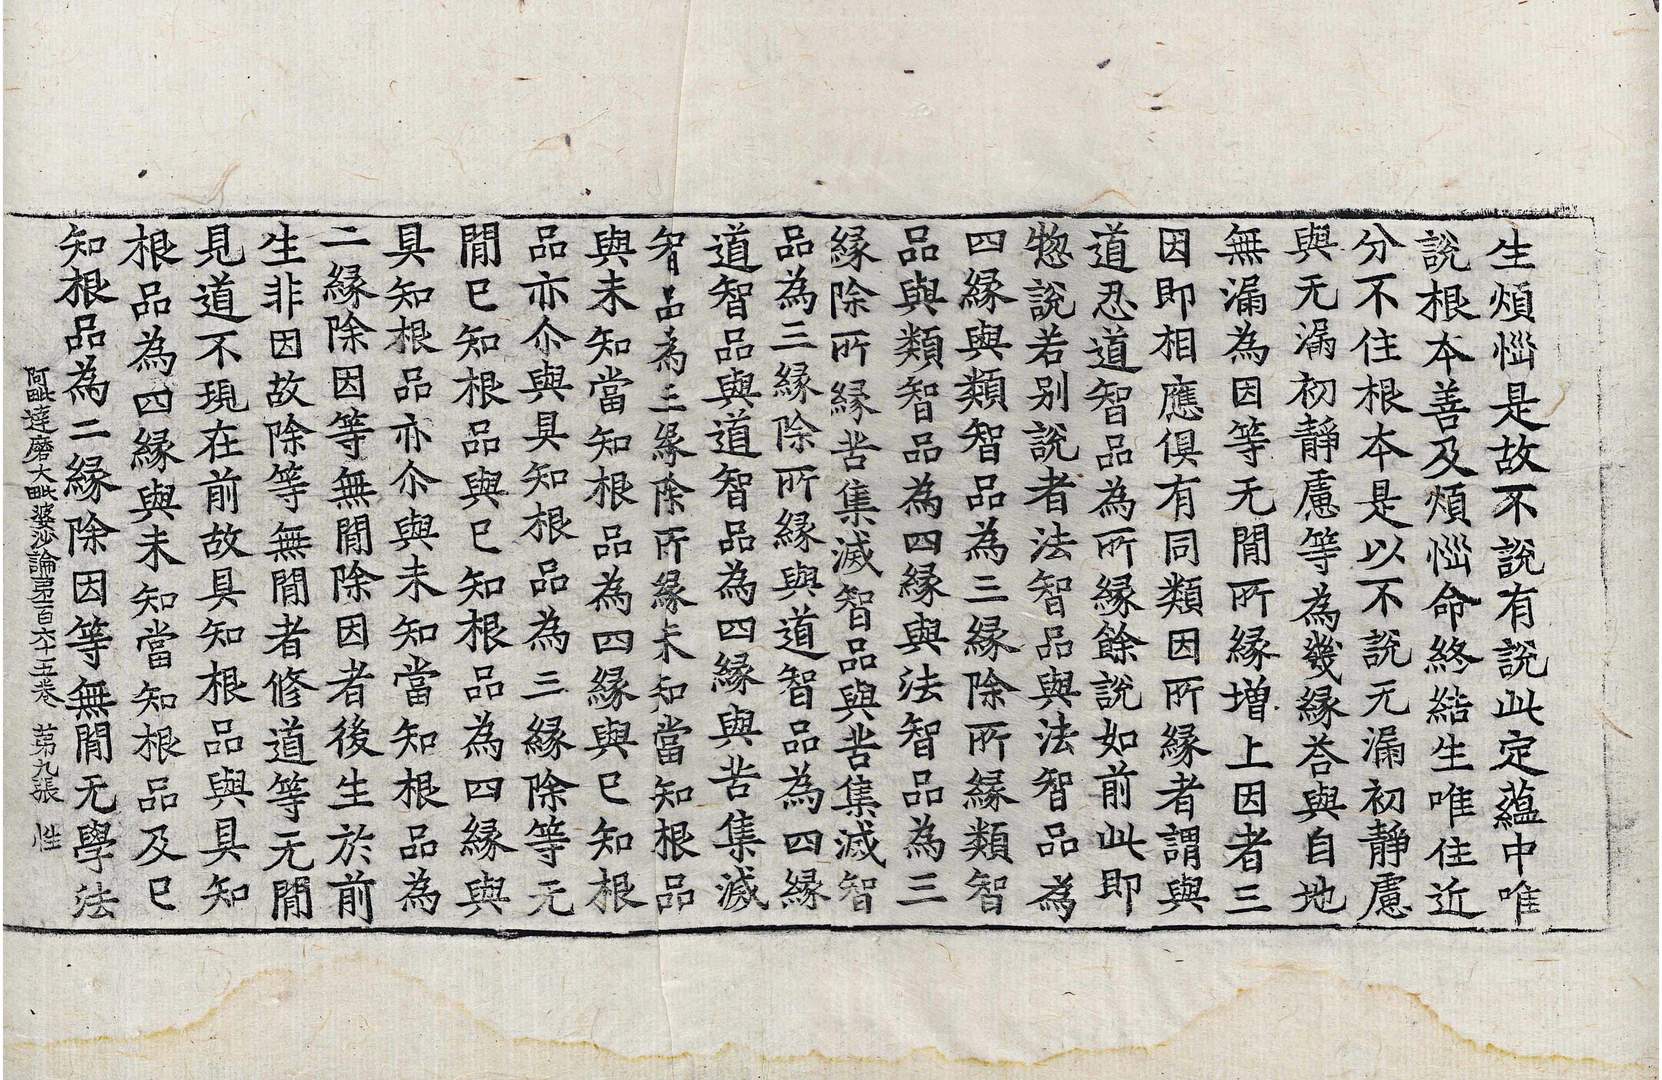 生煩惱是故不說有說此定蘊中唯
說根本善及煩惱命終結生唯住近
分不住根本是以不說无漏初靜慮
與无漏初靜慮等為幾緣荅與自地
無漏為因等无間所緣增上因者三
因即相應俱有同類因所緣者謂與
道忍道智品為所緣餘說如前此即
惣說若别說者法智品與法智品為
四緣與類智品為三緣除所緣類智
品與類智品為四緣與法智品為三
緣除所緣苦集滅智品與苦集滅智
品為三緣除所緣與道智品為四緣
道智品與道智品為四緣與苦集滅
智品為三緣除所緣未知當知根品
與未知當知根品為四緣與已知根
品亦尒與具知根品為三緣除等无
間已知根品與已知根品為四緣與
具知根品亦尒與未知當知根品為
二緣除因等無間除因者後生於前
生非因故除等無間者修道等无間
見道不現在前故具知根品與具知
根品為四緣與未知當知根品及已
知根品為二緣除因等無間无學法
阿毗達磨大毗婆沙論第一百六十五卷 第九張 性